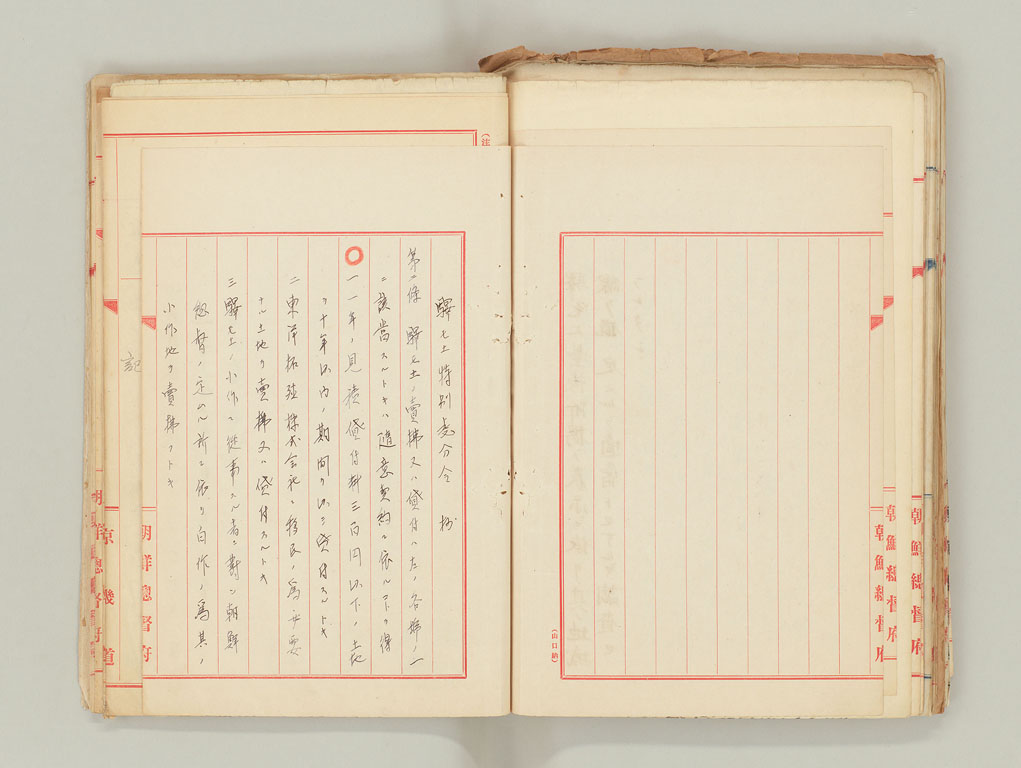 驛屯土特別處分令 抄
第二條 驛屯土ノ賣拂又ハ貸付ハ左ノ各號ノ一
ニ該當スルトキハ隨意契約ニ依ルコトヲ得
一 一年ノ見積貸付料三百円以下ノ土地
ヲ十年以内ノ期間ヲ以テ貸付スルトキ
二 東洋拓殖株式会社ニ移民ノ爲必要
ナル土地ヲ賣拂又ハ貸付スルトキ
三 驛屯土ノ小作ニ從事スル者ニ對シ朝鮮
総督ノ定ムル所ニ依リ自作ノ爲其ノ
小作地ヲ賣拂フトキ
記
朝鮮總督府
京畿道
朝鮮總督府
(山口納)
朝鮮總督府
朝鮮總督府
朝鮮總督府